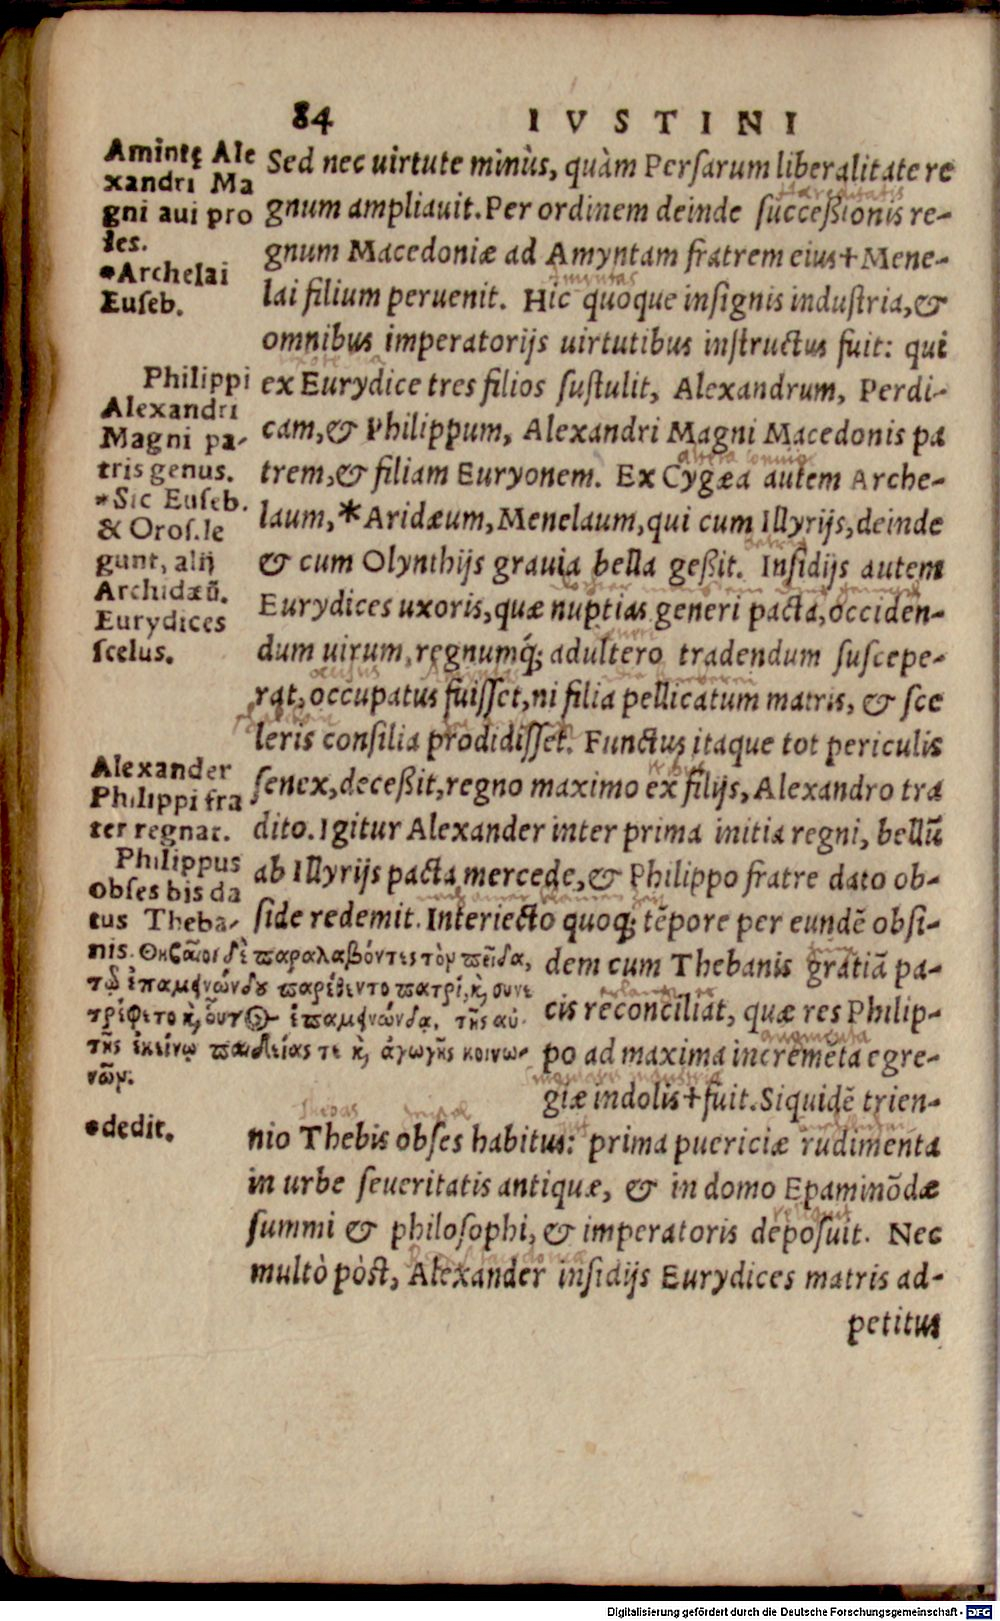 84 IVSTINI
Amintę Ale
xandri Ma
gni aui pro
les.
*Archelai
Euseb.
Philippi
Alexandri
Magni pa-
tris genus.
*Sic Euseb.
& Oros. le
gunt, alij
Archidæũ.
Eurydices
scelus.
Alexander
Philippi fra
ter regnat.
Philippus
obses bis da
tus Theba-
nis. Θηβαῖοι δὲ παραλαβόντες τὸν παῖδα,
τῷ ἐπαμεινώνδου παρέθεντο πατρί, κỳ συνε
τρέφετο κỳ οὗτος ἐπαμεινώνδᾳ, τῆς αὐ-
τῆς ἐκείνῳ παιδείας τε κỳ ἀγωγῆς κοινω-
νῶν.
*dedit.
Sed nec uirtute minùs, quàm Persarum liberalitate re
Hæreditatis
gnum ampliauit. Per ordinem deinde succeßionis re-
gnum Macedoniæ ad Amyntam fratrem eius+Mene-
Amyntas
lai filium peruenit. Hic quoque insignis industria, &
omnibus imperatorijs uirtutibus instructus fuit: qui
ex Eurydice tres filios sustulit, Alexandrum, Perdi-
cam, & Philippum, Alexandri Magni Macedonis pa
altera coniuge
trem, & filiam Euryonem. Ex Cygæa autem Arche-
laum, *Aridæum, Menelaum, qui cum Illyrijs, deinde
& cum Olynthijs grauia bella geßit. Insidijs autem
Eurydices uxoris, quæ nuptias generi pacta, occiden-
dum uirum, regnumq́; adultero tradendum suscepe-
occisus Amyntas
rat, occupatus fuisset, ni filia pellicatum matris, & sce
leris consilia prodidisset. Functus itaque tot periculis
tribus
senex, deceßit, regno maximo ex filijs, Alexandro tra
dito. Igitur Alexander inter prima initia regni, bellũ
ab Illyrijs pacta mercede, & Philippo fratre dato ob-
side redemit. Interiecto quoq; tẽpore per eundẽ obsi-
dem cum Thebanis gratiã pa-
cis reconciliat, quæ res Philip-
augmenta
po ad maxima incremẽta egre-
singularis industria
giæ indolis+fuit. Siquidẽ trien-
Thebas
nio Thebis obses habitus: prima puericiæ rudimenta
in urbe seueritatis antiquæ, & in domo Epaminõdæ
reliquit
summi & philosophi, & imperatoris deposuit. Nec
Rex Macedoniæ
multò pòst, Alexander insidijs Eurydices matris ad-
petitus
Digitalisierung gefördert durch die Deutsche Forschungsgemeinschaft - DFG